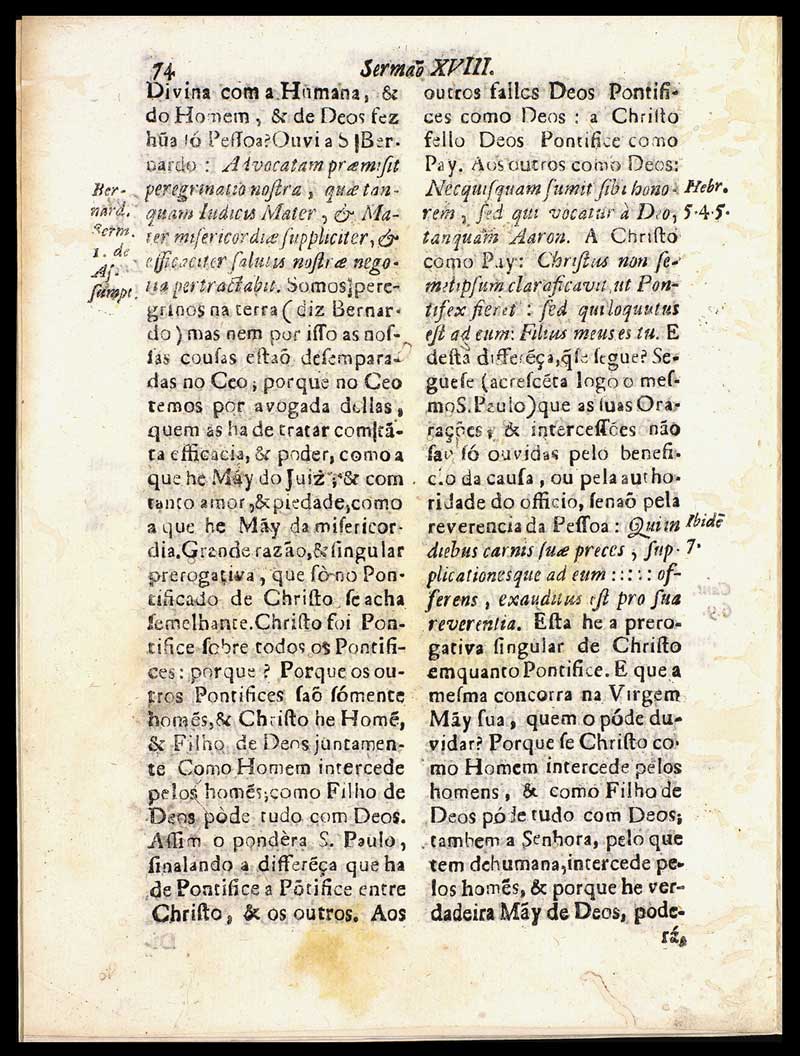 74 Sermaõ XVIII.
Divina com a Humana, &
do Homem, & de Deos fez
hũa só Pessoa? Ouvi a S. Ber-
nardo: Advocatam præmisit
peregrinatio nostra, quæ tan-
quam Iudicis Mater, & Ma-
ter misericordiæ suppliciter, &
efficaciter salutis nostræ nego-
tia pertractabit. Somos pere-
grinos na terra (diz Bernar-
do) mas nem por isso as nos-
sas cousas estaõ desempara-
das no Ceo; porque no Ceo
temos por avogada dellas,
quem as ha de tratar com tã-
ta efficacia, & poder, como a
que he Mãy do Juiz; & com
tanto amor, & piedade, como
a que he Mãy da misericor-
dia. Grande razão, & singular
prerogativa, que sò no Pon-
tificado de Christo se acha
semelhante. Christo foi Pon-
tifice sobre todos os Pontifi-
ces: porque? Porque os ou-
tros Pontifices saõ sómente
homẽs, & Christo he Homẽ,
& Filho de Deos juntamen-
te Como Homem intercede
pelos homẽs; como Filho de
Deos pòde tudo com Deos.
Assim o pondèra S. Paulo,
sinalando a differẽça que ha
de Pontifice a Põtifice entre
Christo, & os outros. Aos
Ber-
nard.
Serm.
1. de
As-
sumpt.
outros falles Deos Pontifi-
ces como Deos: a Christo
fello Deos Pontifice como
Pay. Aos outros como Deos:
Nec quisquam sumit sibi hono-
rem, sed qui vocatur à Deo,
tanquam Aaron. A Christo
como Pay: Christus non se-
metipsum clarificavit, ut Pon-
tifex fieret: sed qui loquutus
est ad eum: Filius meus es tu. E
desta differẽça, q̃ se segue? Se-
guese (acrescẽta logo o mes-
mo S. Paulo) que as suas Ora-
rações, & intercessões não
saõ só ouvidas pelo benefi-
cio da causa, ou pela autho-
ridade do officio, senaõ pela
reverencia da Pessoa: Qui in
diebus carnis suæ preces, sup-
plicationesque ad eum ::::: of-
ferens, exauditus est pro sua
reverentia. Esta he a prero-
gativa singular de Christo
emquanto Pontifice. E que a
mesma concorra na Virgem
Mãy sua, quem o póde du-
vidar? Porque se Christo co-
mo Homem intercede pelos
homens, & como Filho de
Deos póde tudo com Deos;
tambem a Senhora, pelo que
tem de humana, intercede pe-
los homẽs, & porque he ver-
dadeira Mãy de Deos, pode-
rá,
Hebr.
5.4.5.
Ibidẽ
7.